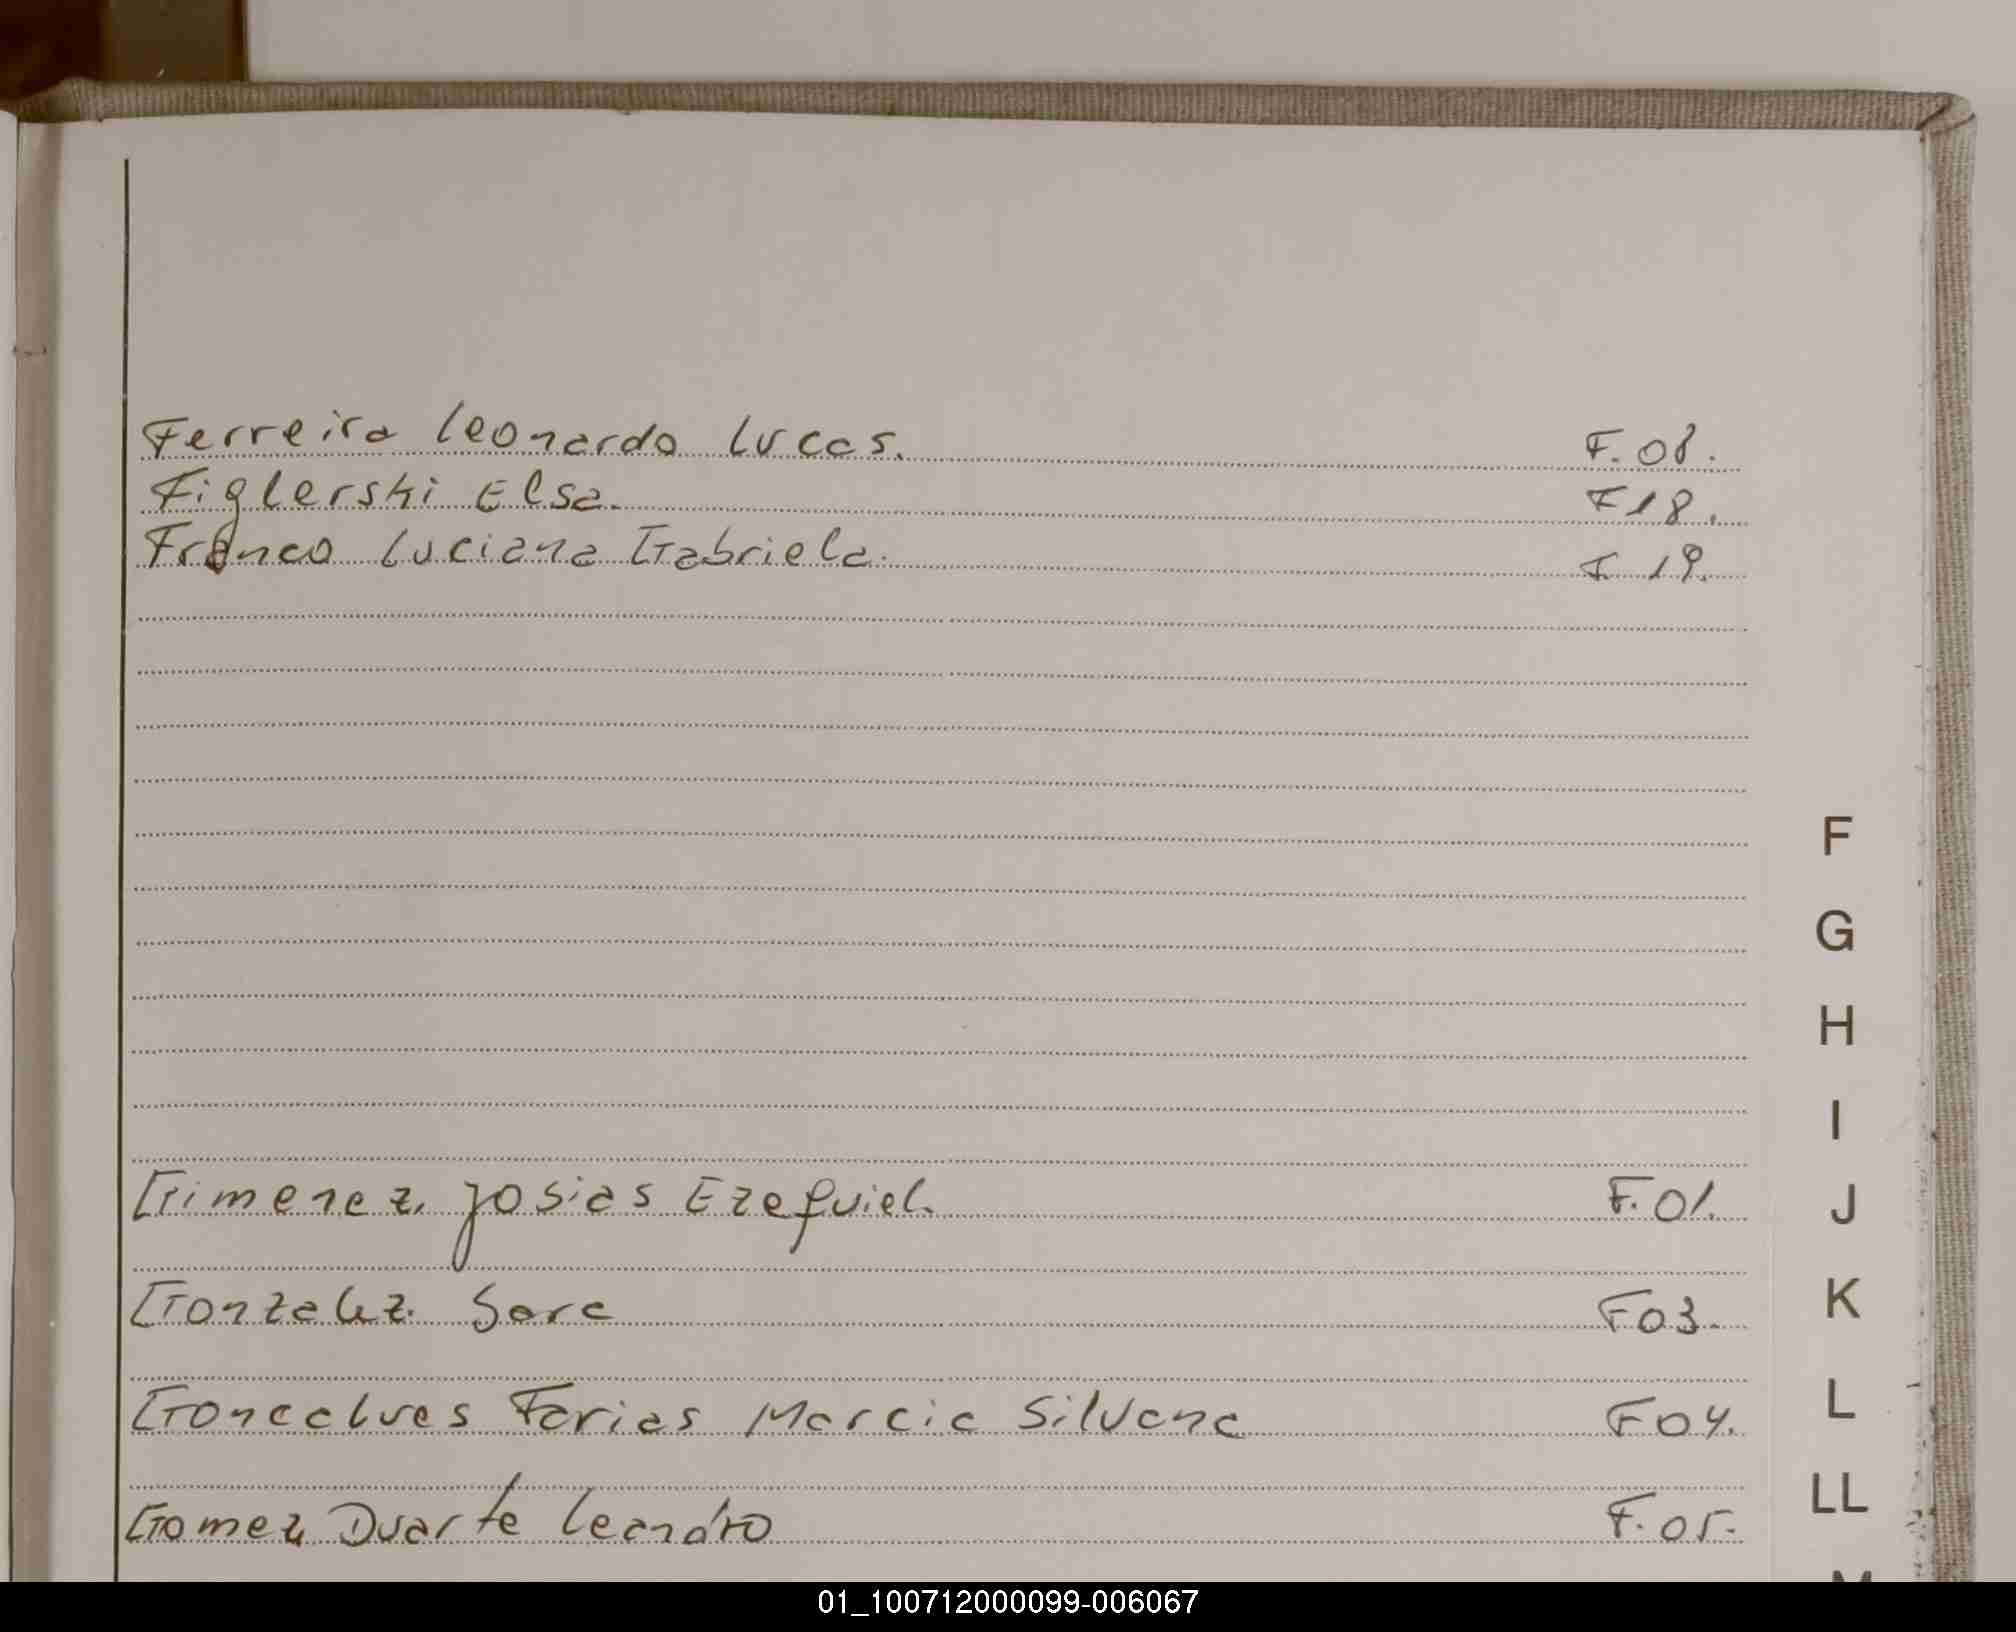 Ferreira Leonardo Lucas. F. 08.
Figlerski Elsa. F 18.
Franco Luciana Gabriela. F 19.
F
G
H
I
Gimenez, Josias Ezequiel. F. 01.
J
Gonzalez. Sara F 03.
K
Goncalves Farias Marcia Silvana F 04.
L
LL
Gomez Duarte Leandro F. 05.
M
01_100712000099-006067